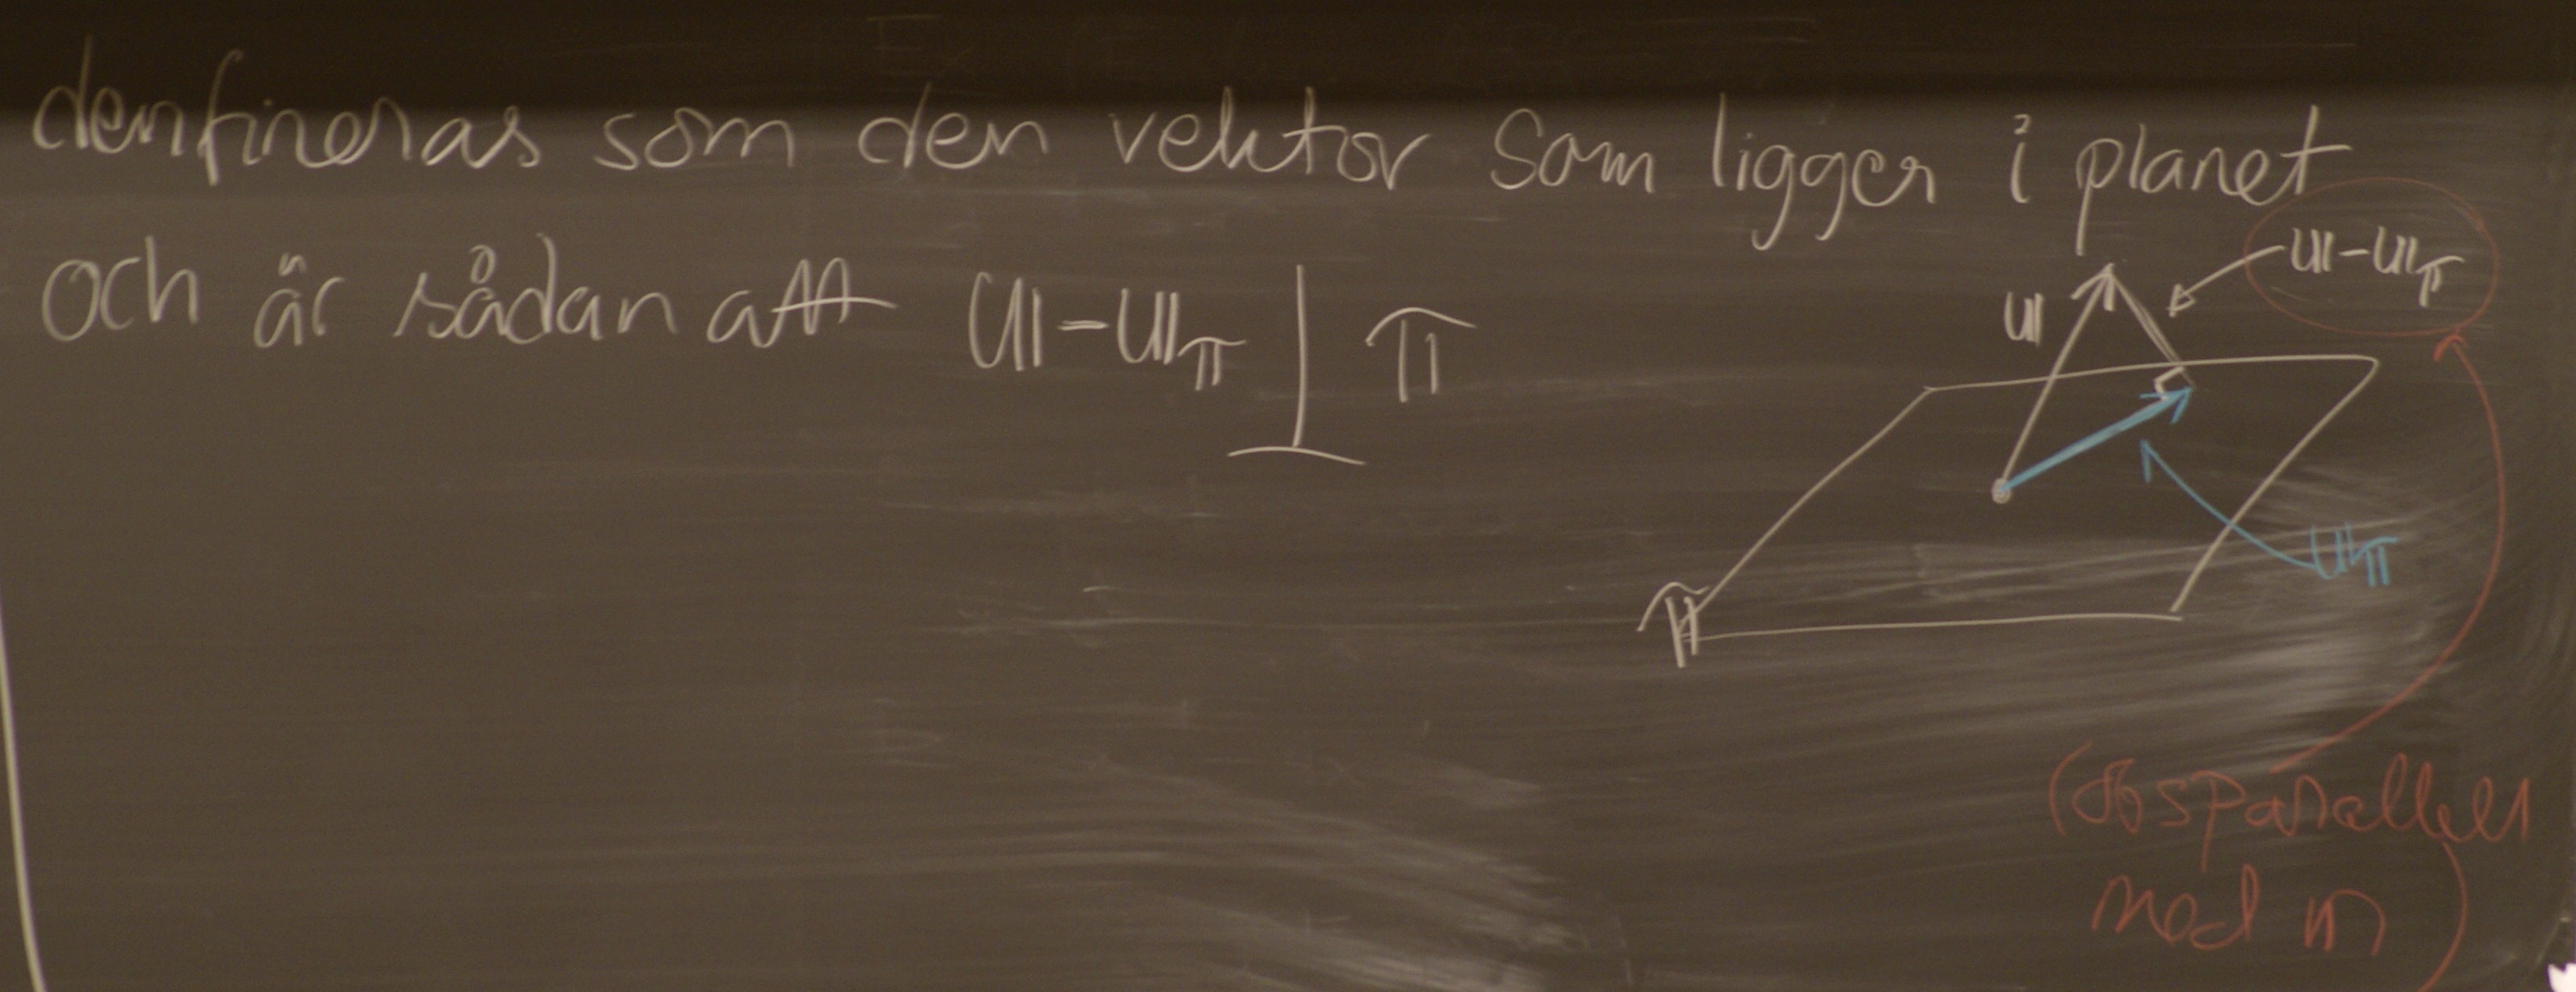 denfineras som den vektor som ligger i planet
och är sådan att u-u_π ⊥ π
u-u_π
u
u_π
π
(obs parallell
med n)